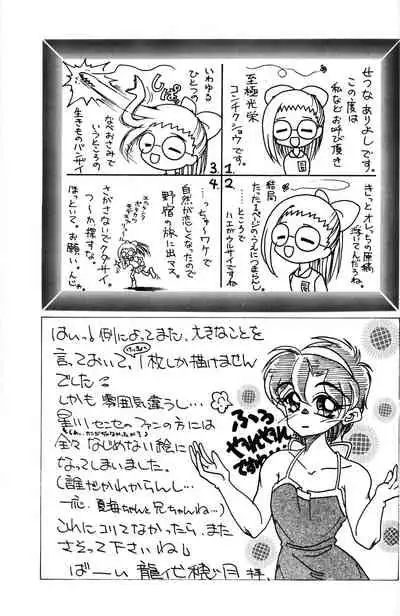 せつな ありよし です。
この度は
私など お呼び頂き
至極光栄
コンチクショウです。
1.
きっと オレっちの原稿
浮いてんだろな。
結局
たった1ぺじのうえにつまらんし
…ところで
ハエがウルサイですね
2
いわゆる
ひとつの
しぱっ
なべおさみで
いつところの
生きものバンザイ
3.
…っちゅーワケで
自然が恋しくなったので
野宿の旅に出マス。
さがさないでクダサイ
つーか探すな。
ほっといて。お願い。
4.
はい。！例によってまた、大きなことを
言っておいて、1枚しか描けません
でした
しかも 雰囲気違うし…
星川センセのファンの方には
全々なじめない絵に
なってしまいました。
(誰だかわからんし…
一応、夏海ちゃんと兄ちゃんね…)
これにコリてなかったら、また
さそって下さいね！
ばーい 龍代穂月 拝.
ふう
やれやれ
ですわ…